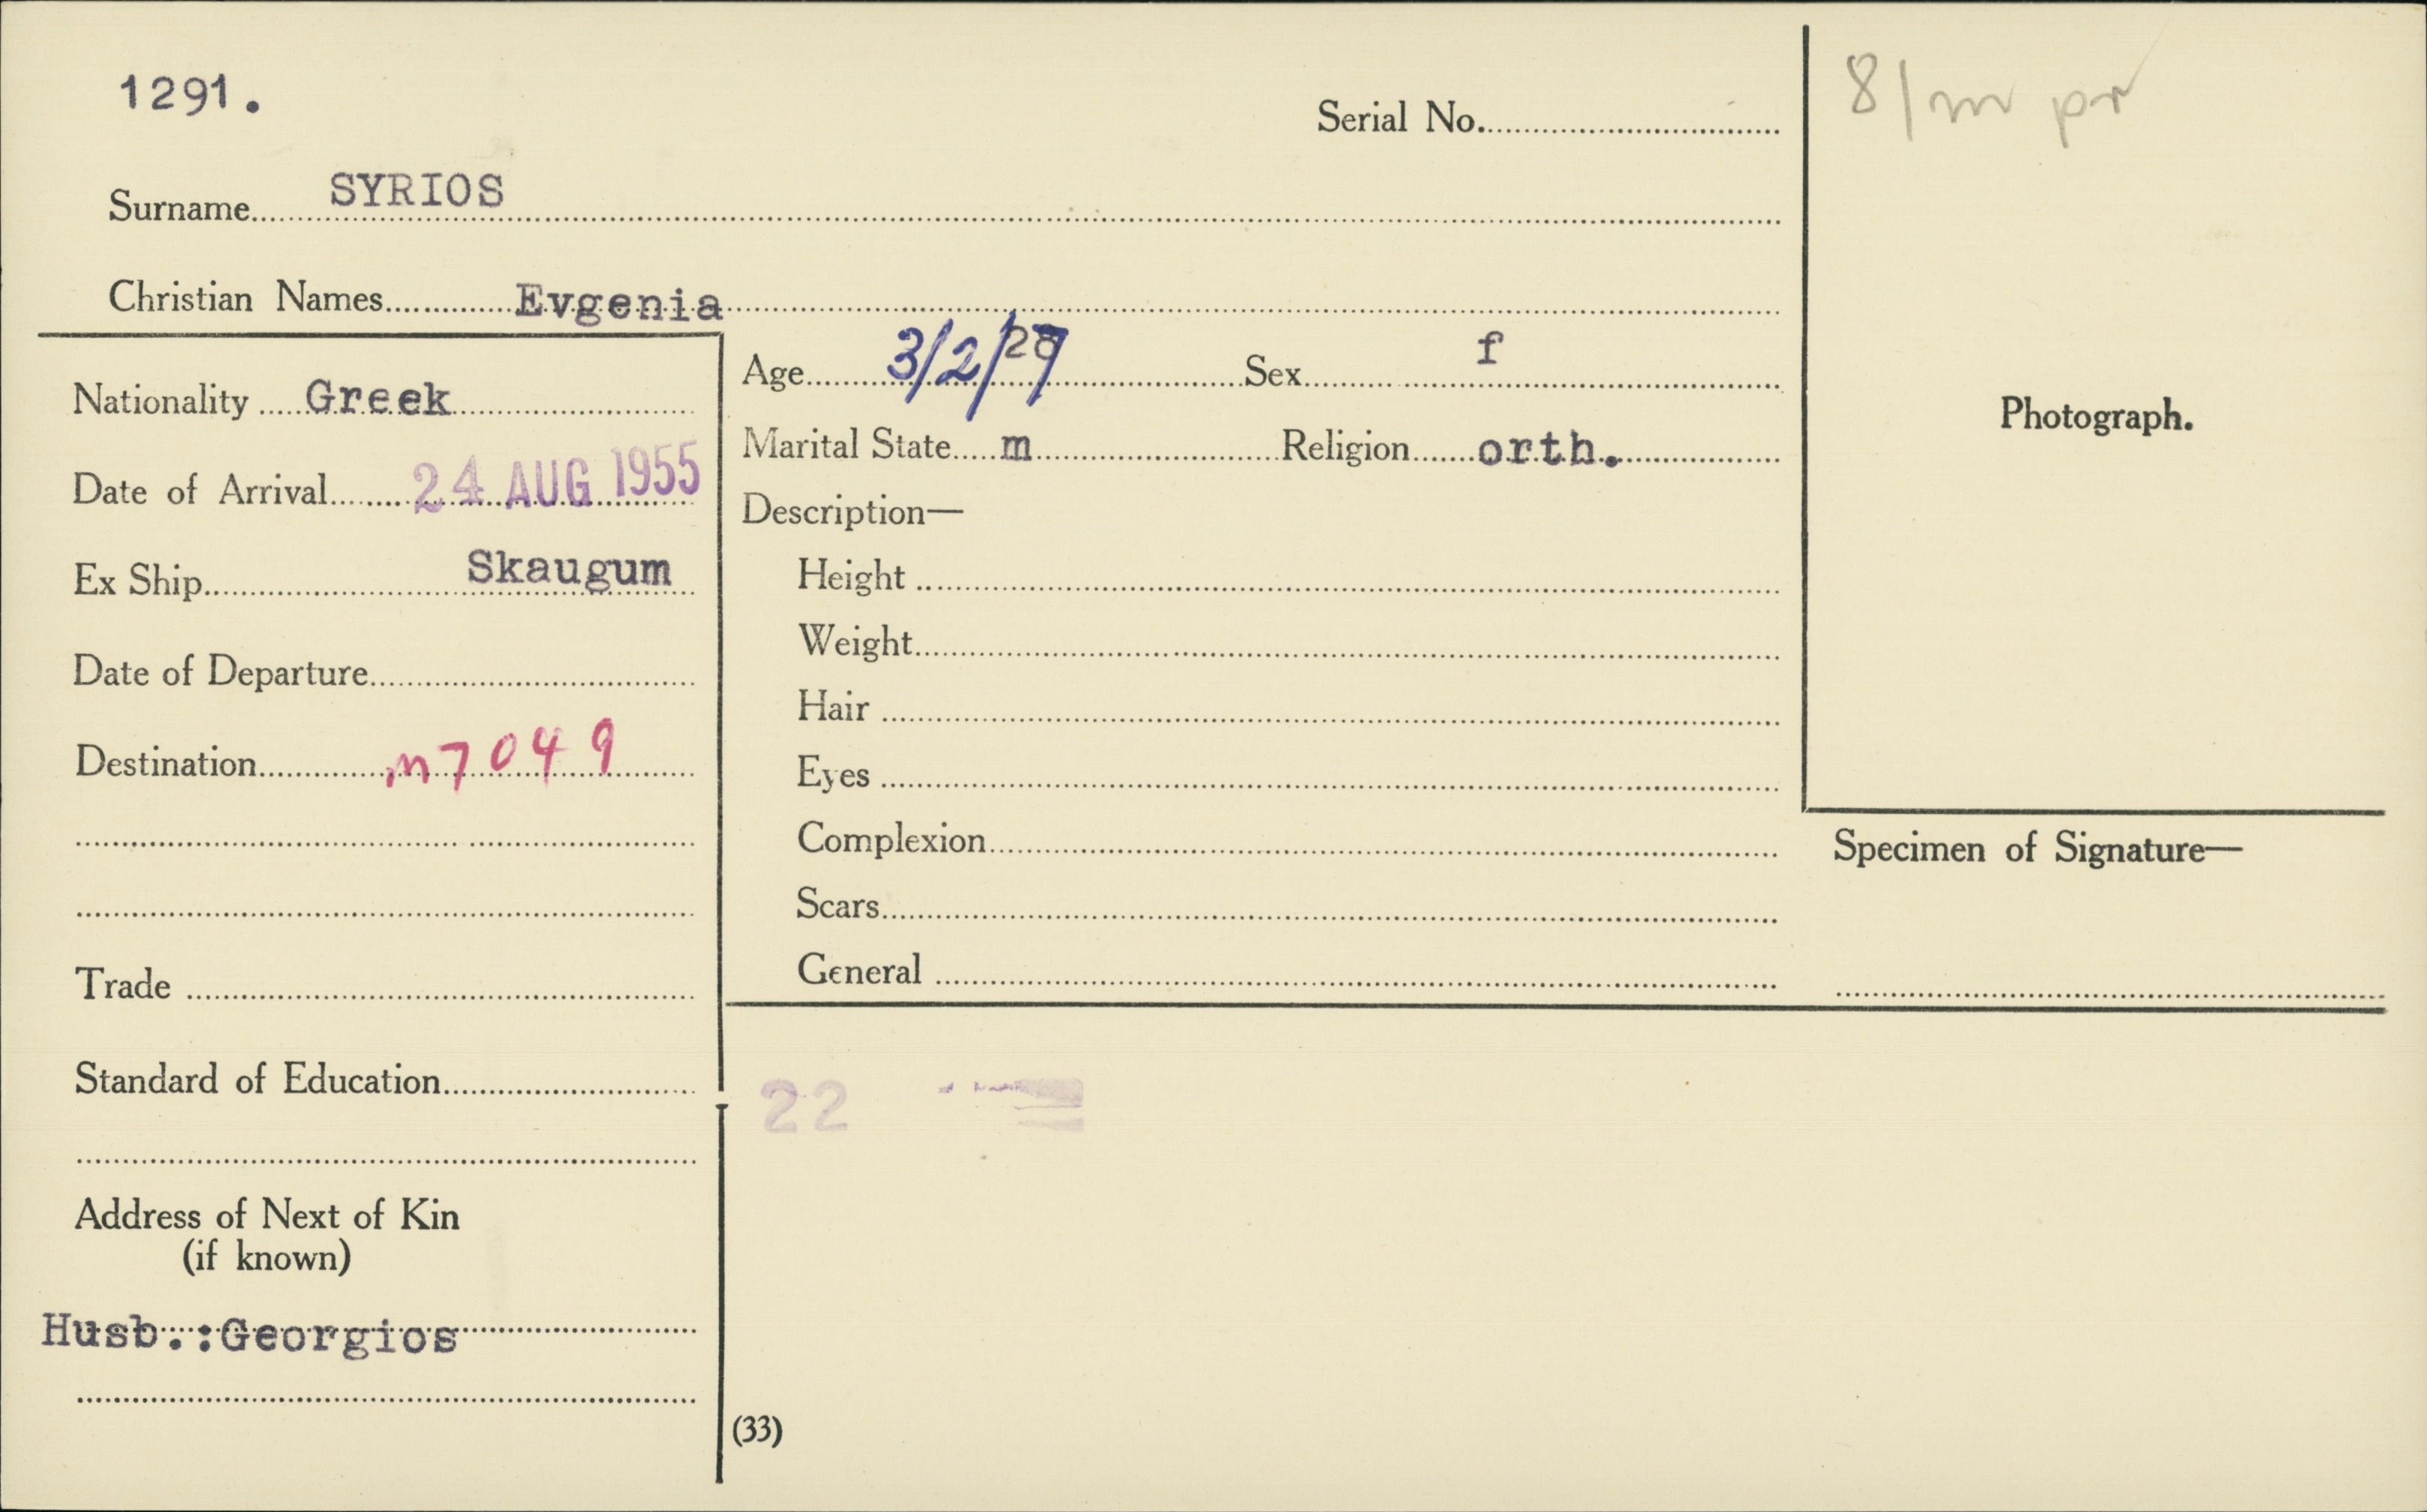 1291.
Serial No.
8/m pr
Surname SYRIOS
Christian Names Evgenia
Nationality Greek
Date of Arrival 24 AUG 1955
Ex Ship Skaugum
Date of Departure
Destination m7049
Trade
Standard of Education
Address of Next of Kin
(if known)
Husb.:Georgios
Age 3/2/27 Sex f
Marital State m Religion orth.
Description—
Height
Weight
Hair
Eyes
Complexion
Scars
General
Photograph.
Specimen of Signature—
22
(33)